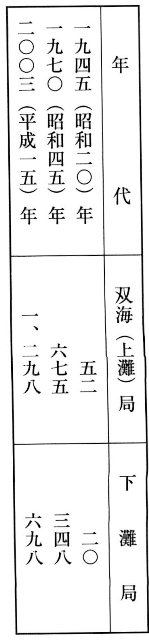 年代　双海（上灘）局　下灘局
一九四五（昭和二〇）年　五二　二〇
一九七〇（昭和四五）年　六七五　三四八
二〇〇三（平成一五）年　一、二九八　六九八